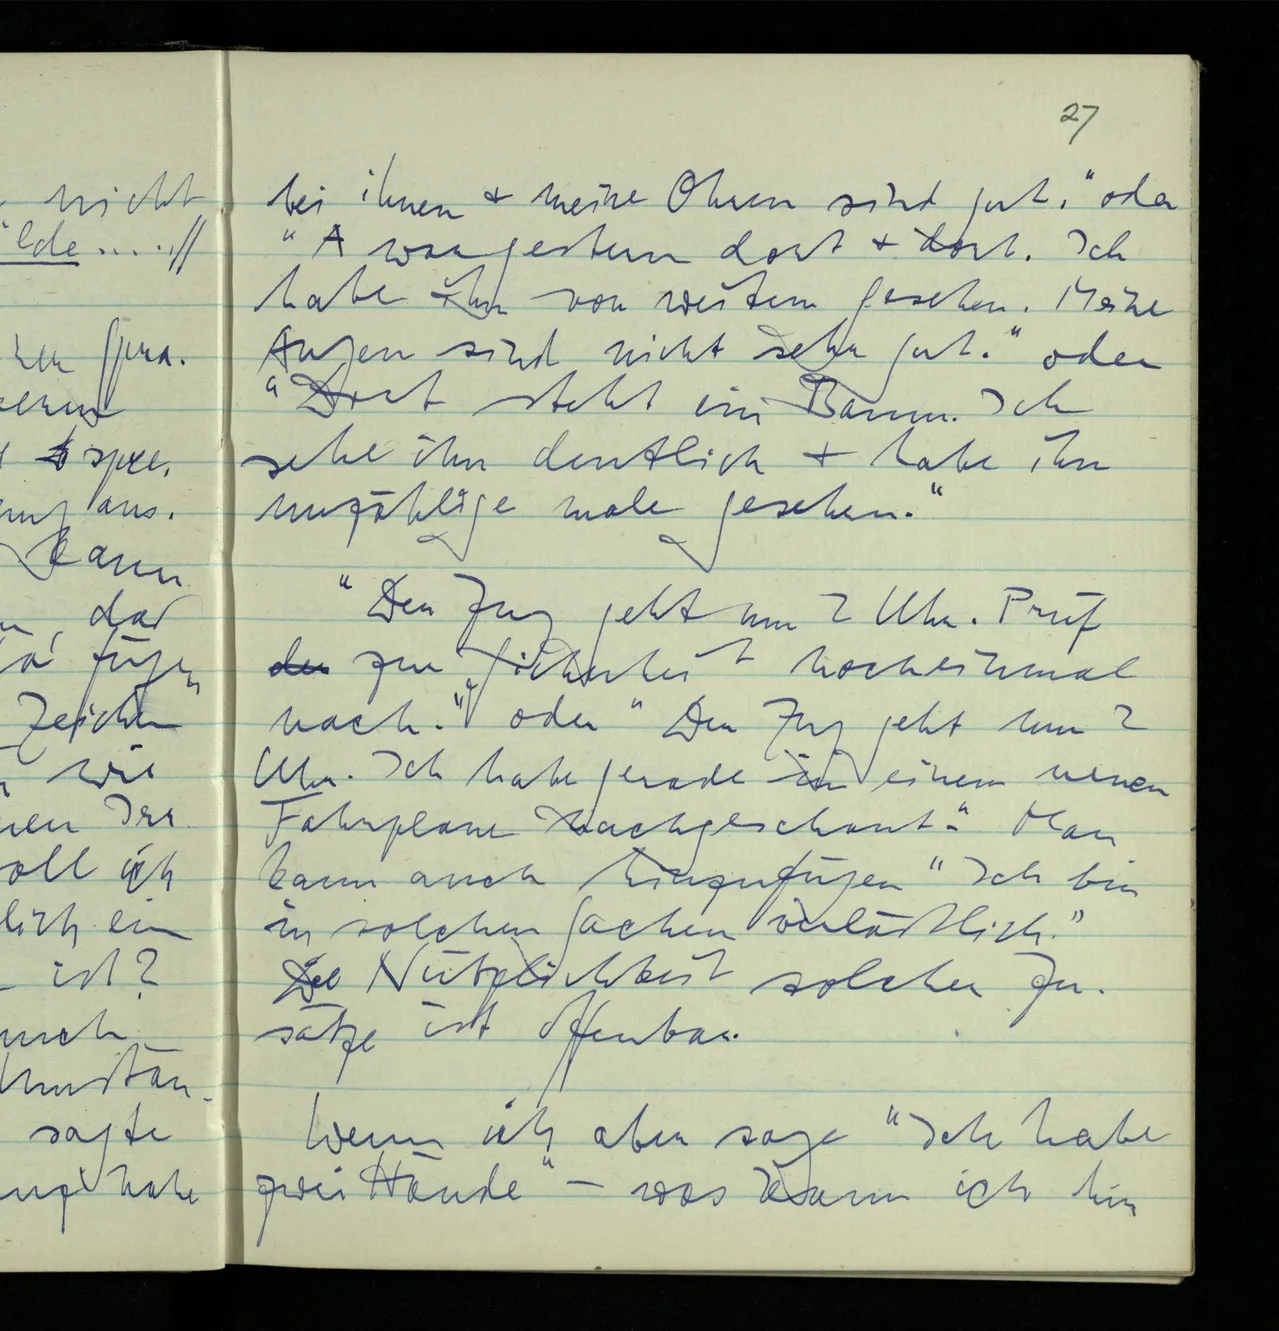 27
nicht
bei ihnen + meine Ohren sind gut." oder
lde....//
"A war gestern dort + dort. Ich
habe ihn von weitem gesehen. Meine
Augen sind nicht sehr gut." oder
"Dort steht ein Baum. Ich
sehe ihn deutlich + habe ihn
unzählige male gesehen."
kann
"Der Zug geht um 2 Uhr. Prüf
zur Sicherheit nocheinmal
Zeichen
nach." oder "Der Zug geht um 2
wie
Uhr. Ich habe gerade in einem neuen
Fahrplane nachgeschaut". Man
soll ich
kann auch hinzufügen "Ich bin
lich ein
in solchen Sachen verläßlich."
ist?
Die Nützlichkeit solcher Zu-
sätze ist offenbar.
sagte
Wenn ich aber sage "Ich habe
habe
zwei Hände" – was kann ich hin